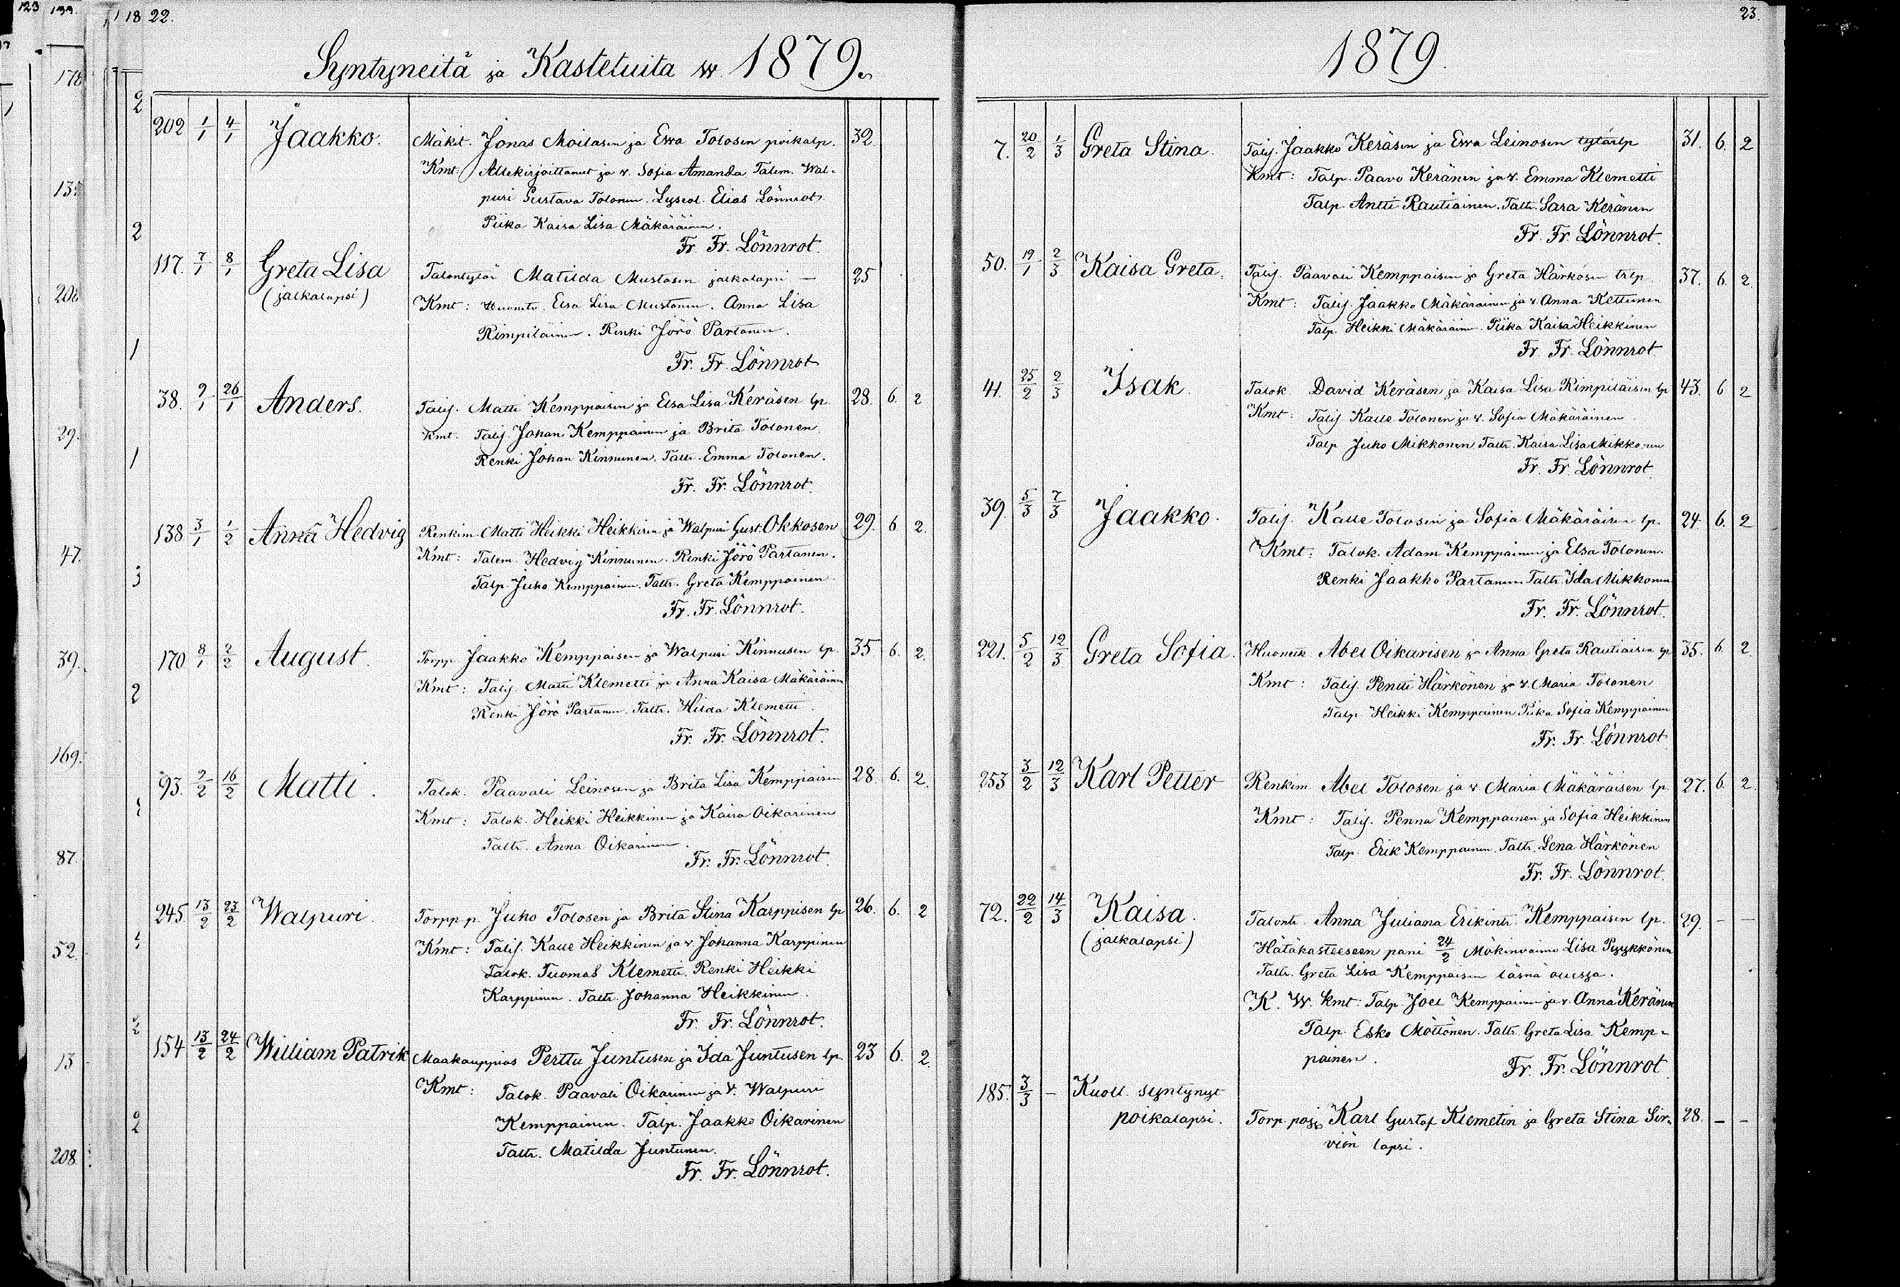 22.
Syntyneitä ja Kastetuita w. 1879.
202 1/1 4/1 Jaakko. Mäkit. Jonas Moilasen ja Ewa Tolosen poikalp. 32
Kmt: Allekirjoittanut ja v. Sofia Amanda Talem. Wal-
puri Gustava Tolonen. Lyseol. Elias Lönnrot.
Piika Kaisa Lisa Mäkäräinen.
Fr. Fr. Lönnrot.
117. 7/1 8/1 Greta Lisa Talontytär Matilda Mustosen jalkalapsi — 25
(jalkalapsi) Kmt: Elsa Lisa Mustonen. Anna Lisa
Rimpiläinen. Renki Jörö Partanen.
Fr. Fr. Lönnrot
38. 2/1 26/1 Anders. Talij. Matti Kemppaisen ja Elsa Lisa Keräsen lp. 28. 6. 2
Kmt. Talij Johan Kemppainen ja Brita Tolonen
Renki Johan Kinnunen. Taltr. Emma Tolonen.
Fr. Fr. Lönnrot.
138 3/1 1/2 Anna Hedvig Renkim. Matti Heikki Heikkisen ja Walpuri Gust. Okkosen 29. 6 2.
Kmt: Talem. Hedvig Kinnunen. Renki Jörö Partanen.
Talp. Juho Kemppainen. Taltr. Greta Kemppainen
Fr. Fr. Lönnrot.
170 8/1 2/2 August. Torpp. Jaakko Kemppaisen ja Walpuri Kinnusen lp. 35 6. 2.
Kmt: Talij. Matti Klemetti ja Anna Kaisa Mäkäräinen
Renki Jörö Partanen. Taltr. Hilda Klemetti.
Fr. Fr. Lönnrot.
93. 2/2 16/2 Matti. Talok. Paavali Leinosen ja Brita Lisa Kemppaisen 28. 6. 2.
Kmt: Talok. Heikki Heikkinen ja Kaisa Oikarinen
Taltr. Anna Oikarinen.
Fr. Fr. Lönnrot.
245 13/2 23/2 Walpuri. Torpp.p. Juho Tolosen ja Brita Stina Karppisen lp 26. 6. 2
Kmt: Talij. Kalle Heikkinen ja v. Johanna Karppinen
Talok. Tuomas Klemetti. Renki Heikki
Karppinen. Taltr. Johanna Heikkinen.
Fr. Fr. Lönnrot.
154 13/2 24/2 William Patrik Maakauppias Perttu Juntusen ja Ida Juntusen lp. 23 6. 2.
Kmt: Talok. Paavali Oikarinen ja v. Walpuri
Kemppainen. Talp. Jaakko Oikarinen
Taltr. Matilda Juntunen.
Fr. Fr. Lönnrot.
23.
1879.
7. 20/2 1/3 Greta Stina. Talij. Jaakko Keräsen ja Ewa Leinosen tytärlp 31. 6. 2
Kmt: Talp. Paavo Keränen ja v. Emma Klemetti
Talp Antti Rautiainen. Taltr. Sara Keränen
Fr. Fr Lönnrot.
50. 19/1 2/3 Kaisa Greta. Talij. Paavali Kemppaisen ja Greta Härkösen trlp 37. 6. 2.
Kmt: Talij. Jaakko Mäkäräinen ja v. Anna Kettunen
Talp. Heikki Mäkäräinen. Piika Kaisa Heikkinen
Fr. Fr. Lönnrot
41. 25/2 2/3 Isak. Talok David Keräsen ja Kaisa Lisa Rimpiläisen lp 43. 6 2
Kmt: Talij Kalle Tolonen ja v. Sofia Mäkäräinen.
Talp Juho Mikkonen Taltr. Kaisa Lisa Mikkonen
Fr. Fr. Lönnrot.
39. 5/3 7/3 Jaakko. Talij Kalle Tolosen ja Sofia Mäkäräisen lp. 24. 6. 2
Kmt: Talok. Adam Kemppainen ja Elsa Tolonen.
Renki Jaakko Partanen Taltr Ida Mikkonen
Fr. Fr. Lönnrot.
221. 5/2 12/3 Greta Sofia. Abel Oikarisen ja Anna Greta Rautiaisen lp 35. 6. 2.
Kmt: Talij. Pentti Härkönen ja v. Maria Tolonen
Talp. Heikki Kemppainen Piika Sofia Kemppainen
Fr. Fr. Lönnrot
253 3/2 12/3 Karl Petter Renkim Abel Tolosen ja v. Maria Mäkäräisen lp. 27. 6. 2.
Kmt: Talij. Penna Kemppainen ja Sofia Heikkinen
Talp. Erik Kemppainen. Taltr. Lena Härkönen
Fr. Fr. Lönnrot.
72. 22/2 14/3 Kaisa. Talontr. Anna Juliana Erikintr. Kemppaisen lp. 29. — —
(jalkalapsi) Hätäkasteeseen pani 24/2 Mökinvaimo Lisa Pyykkönen
Taltr. Greta Lisa Kemppaisen läsnä ollessa.
K. W. kmt: Talp. Joel Kemppainen ja v. Anna Keränen
Talp. Esko Möttönen. Taltr. Greta Lisa Kemp-
painen.
Fr. Fr. Lönnrot.
185. 3/3 — Kuoll. syntynyt
poikalapsi. Torp.poj. Karl Gustaf Klemetin ja Greta Stina Sir- 28. — —
viön lapsi.